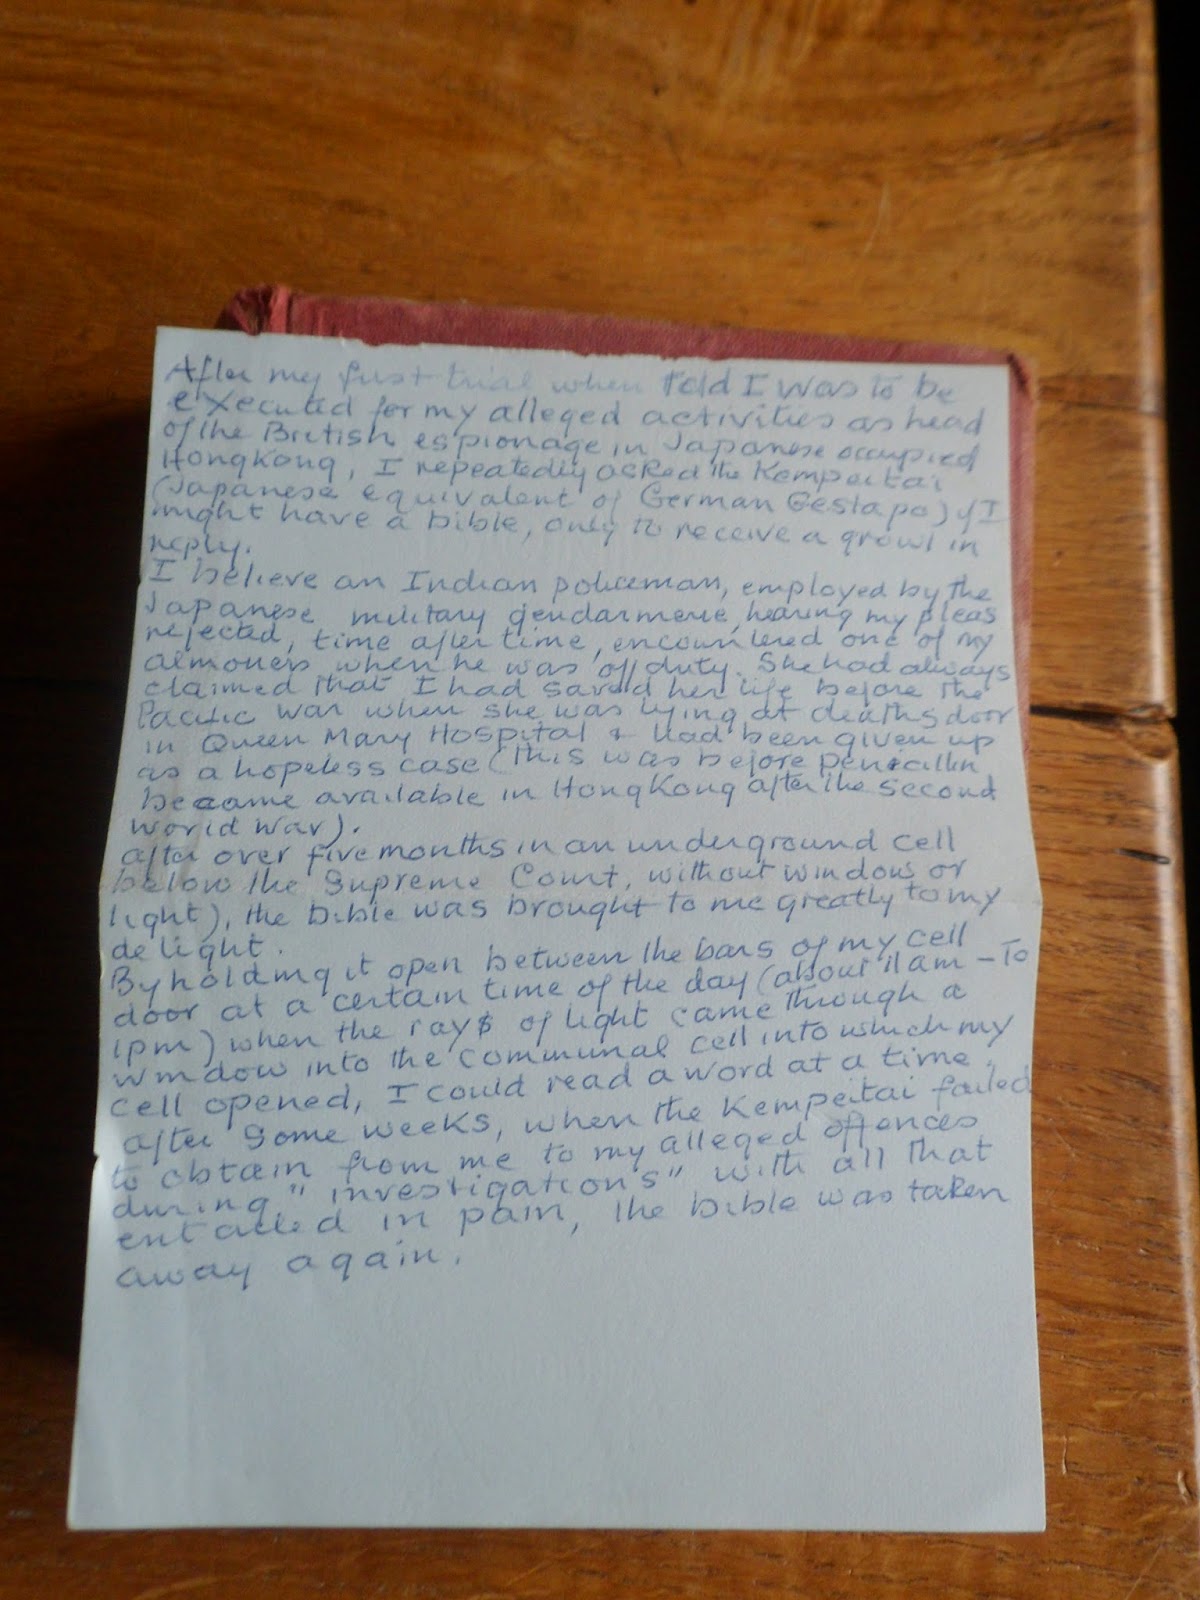 After my first trial when told I was to be
executed for my alleged activities as head
of the British espionage in Japanese occupied
HongKong, I repeatedly asked the Kempeitai
(Japanese equivalent of German Gestapo) if I
might have a bible, only to receive a growl in
reply.
I believe an Indian policeman, employed by the
Japanese military gendarmerie, hearing my pleas
rejected, time after time, encountered one of my
almoners when he was off duty. She had always
claimed that I had saved her life before the
Pacific war when she was lying at deaths door
in Queen Mary Hospital & had been given up
as a hopeless case (this was before penicillin
became available in HongKong after the second
world war).
after over five months in an underground cell
below the Supreme Court, without window or
light), the bible was brought to me greatly to my
delight.
By holding it open between the bars of my cell
door at a certain time of the day (about 11am – To
1pm) when the rays of light came through a
window into the communal cell into which my
cell opened, I could read a word at a time.
after some weeks, when the Kempeitai failed
to obtain from me to my alleged offences
during "investigations" with all that
entailed in pain, the bible was taken
away again.